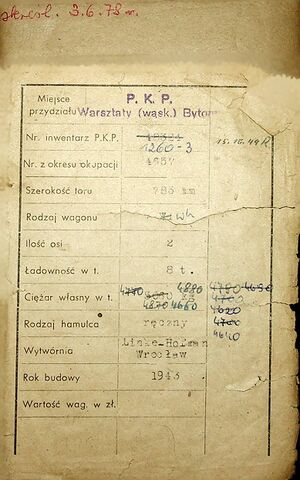 skreśl. 3.6.78 r.
Miejsce przydziału P. K. P.
Warsztaty (wąsk.) Bytom
Nr. inwentarz P.K.P. 1260-3 15.10.49 R
Nr. z okresu okupacji 4657
Szerokość toru 785 mm
Rodzaj wagonu Wwh
Ilość osi 2
Ładowność w t. 8 t.
4740 4880 4780 4690
Ciężar własny w t. 4870 4660 4700
4620
Rodzaj hamulca ręczny 4700
4640
Wytwórnia Linke-Hofman
Wrocław
Rok budowy 1943
Wartość wag. w zł.